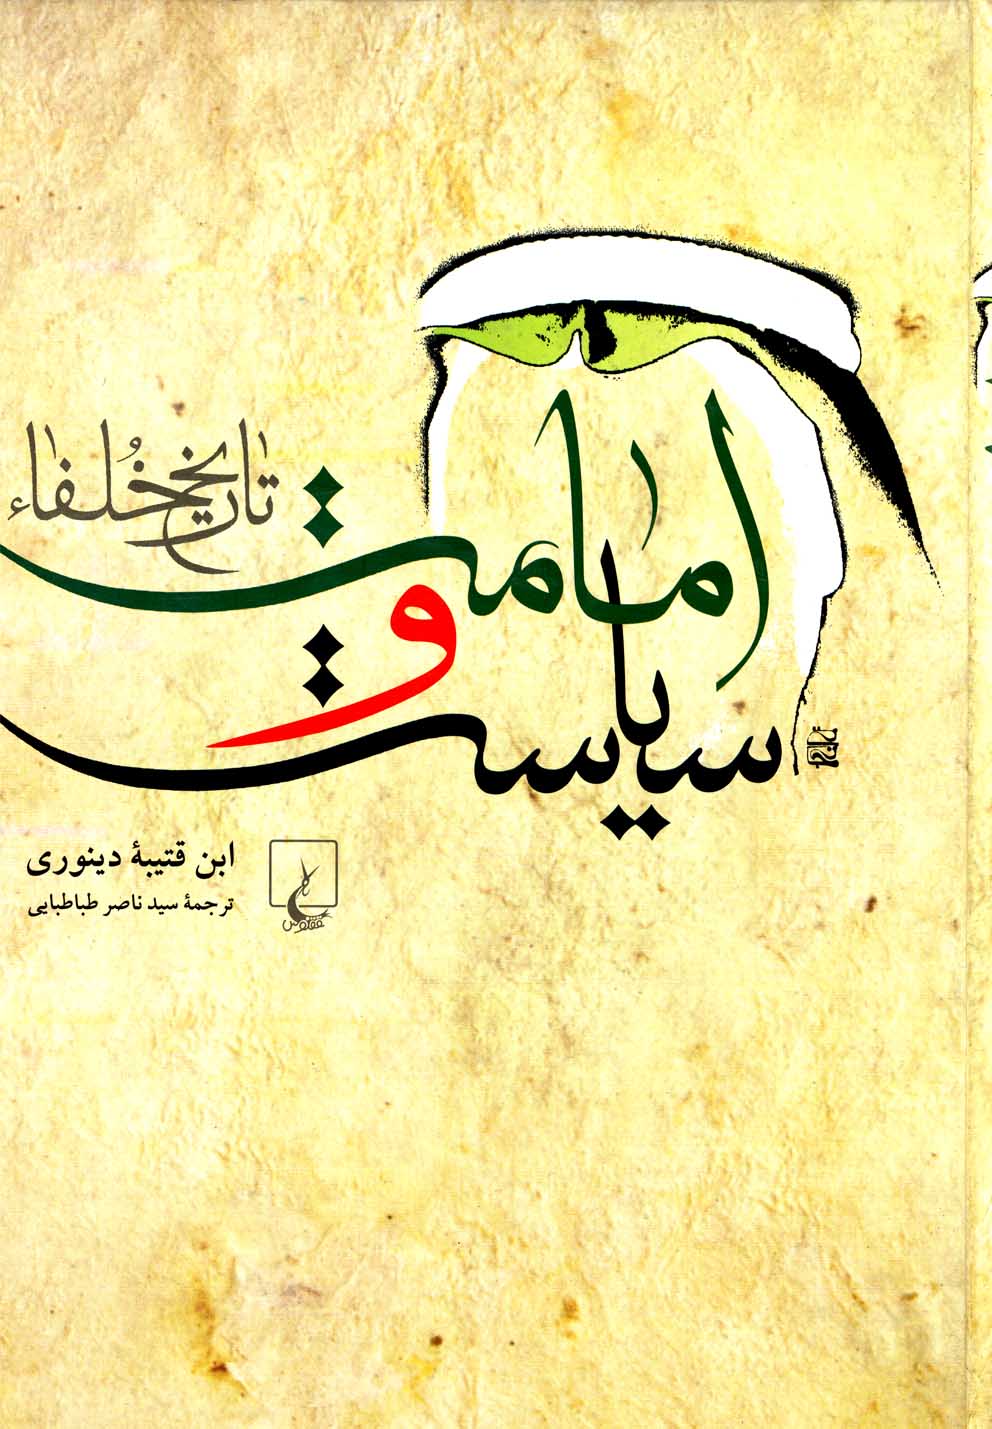 تاریخ خُلفاء
امامت
و
سیاست
ابن قتیبهٔ دینوری
ترجمهٔ سید ناصر طباطبایی
ققنوس